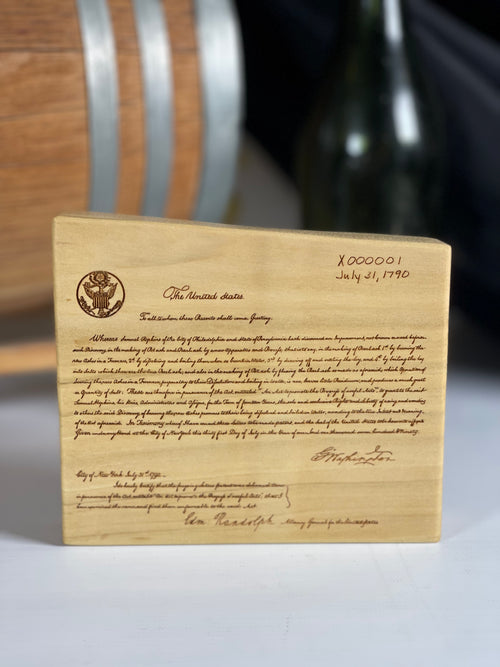 X000001
July 31, 1790
The United States
To all to whom these Presents shall come, Greeting.
Whereas Samuel Hopkins of the City of Philadelphia and State of Pennsylvania hath discovered an Improvement, not known or used before
such Discovery, in the making of Pot ash and Pearl ash by a new Apparatus and Process; that is to say, in the making of Pearl ash 1st by burning the
raw Ashes in a Furnace, 2d by dissolving and boiling them when so burnt in Water, 3rd by drawing off and settling the ley, and 4th by boiling the ley
into Salts which then are the true Pearl ash; and also in the making of Pot ash by fluxing the Pearl ash so made as aforesaid; which Operation of
burning the raw Ashes in a Furnace, preparatory to their Dissolution and boiling in Water, is new, leaves little Residuum; and produces a much greater
Quantity of Salt: These are therefore in pursuance of the Act, entituled "An Act to promote the Progress of useful Arts", to grant to the said
Samuel Hopkins, his Heirs, Administrators and Assigns, for the Term of fourteen Years, the sole and exclusive Right and Liberty of using and vending
to others the said Discovery of burning the raw Ashes previous to their being dissolved and boiled in Water, according to the true Intent and Meaning
of the Act aforesaid. In Testimony whereof I have caused these Letters to be made patent, and the Seal of the United States to be hereunto affixed
Given under my Hand at the City of New York this thirty first Day of July in the Year of our Lord one thousand seven hundred & Ninety.
G. Washington
City of New York July 31st 1790.
I do hereby Certify that the foregoing Letters patent were delivered to me
in pursuance of the Act, entituled "An Act to promote the Progress of useful Arts"; that I
have examined the same, and find them conformable to the said Act.
Edm. Randolph Attorney General for the United States